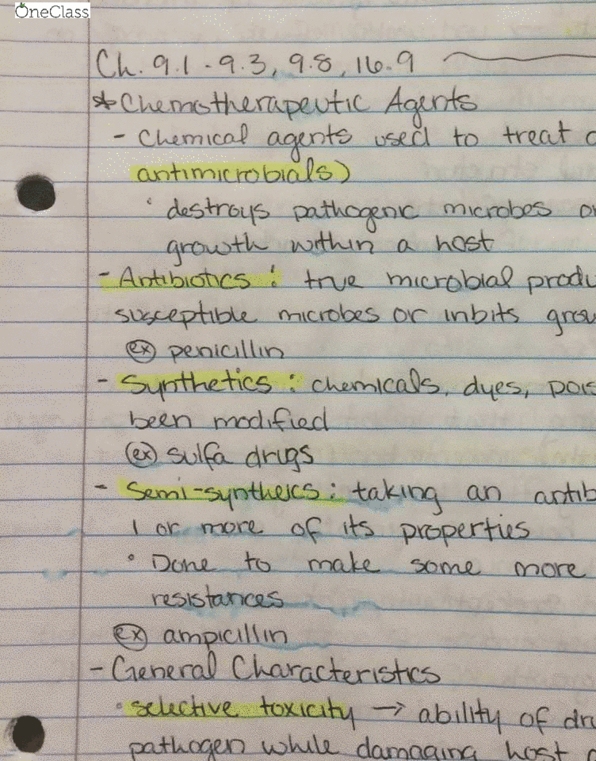 OneClass
Ch. 9.1 - 9.3, 9.8, 16.9
*Chemotherapeutic Agents
- Chemical agents used to treat
antimicrobials)
• destroys pathogenic microbes or
growth within a host
- Antibiotics : true microbial produ
susceptible microbes or inbits grow
ex penicillin
- Synthetics : chemicals, dyes, pois
been modified
ex sulfa drugs
- Semi-syntheics : taking an antib
1 or more of its properties
• Done to make some more
resistances
ex ampicillin
- General Characteristics
• selective toxicity → ability of dru
pathogen while damaging host